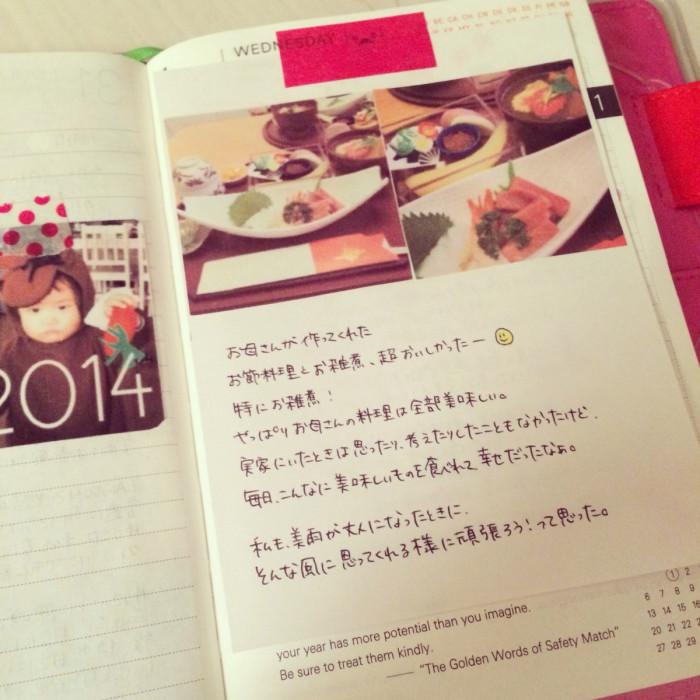 WEDNESDAY
1
2014
お母さんが作ってくれた
お節料理とお雑煮、超おいしかったー
特にお雑煮！
やっぱりお母さんの料理は全部美味しい。
実家にいたときは思ったり、考えたりしたこともなかったけど、
毎日、こんなに美味しいものを食べれて幸せだったなぁ。
私も、美雨が大人になったときに、
そんな風に思ってくれる様に頑張ろう！って思った。
your year has more potential than you imagine.
Be sure to treat them kindly.
—— “The Golden Words of Safety Match”
1 2
6 7 8 9
13 14 15 16
20 21 22 23
27 28 29